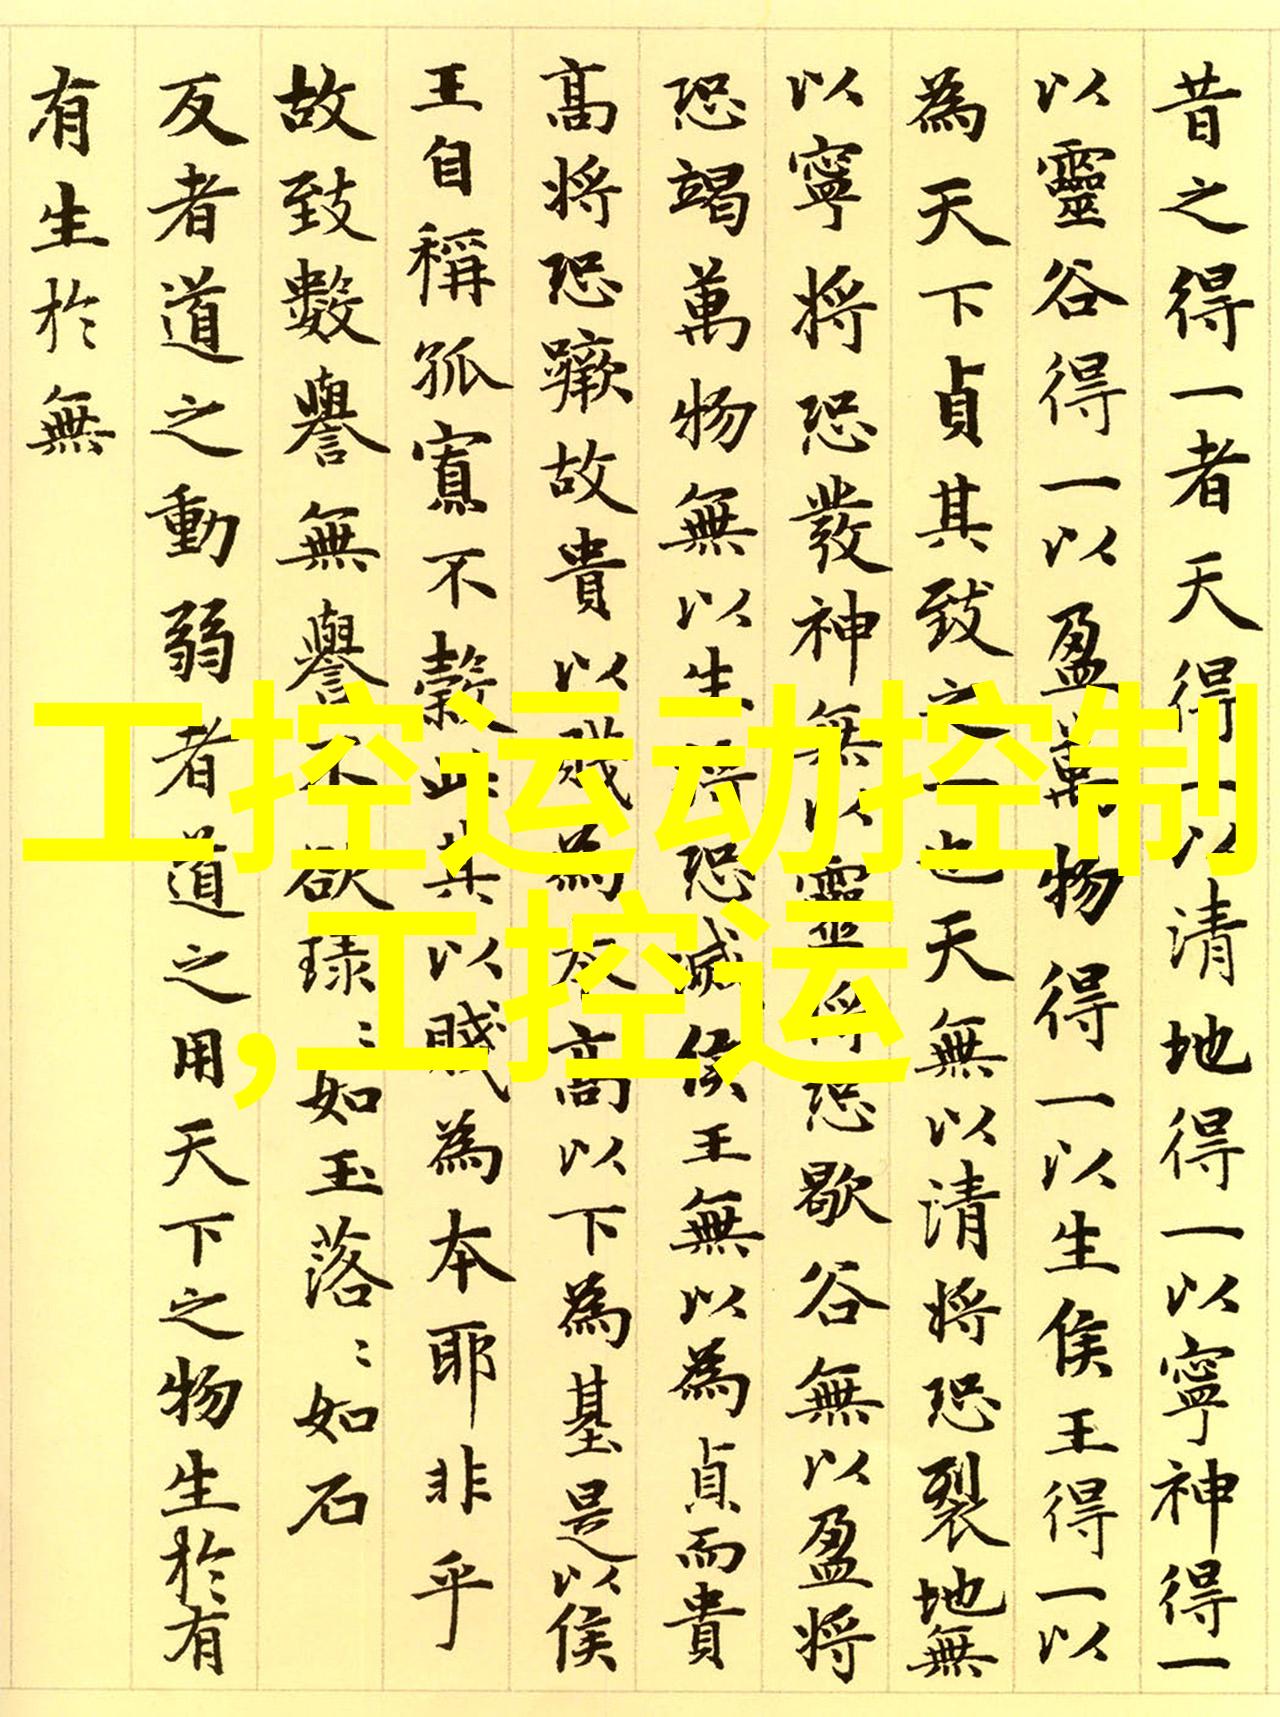 昔之得一者天得一以清地得一以寧神得一
以靈谷得一以盈萬物得一以生侯王得一以
為天下貞其致之一也天無以清將恐裂地無
以寧將恐發神無以靈將恐歇谷無以盈將
恐竭萬物無以生將恐滅侯王無以為貞而貴
高將恐蹶故貴以賤為本高以下為基是以侯
王自稱孤寡不穀此其以賤為本耶非乎
故致數譽無譽不欲琭〻如玉落〻如石
反者道之動弱者道之用天下之物生於有
有生於無
工控运动控制
,工控运